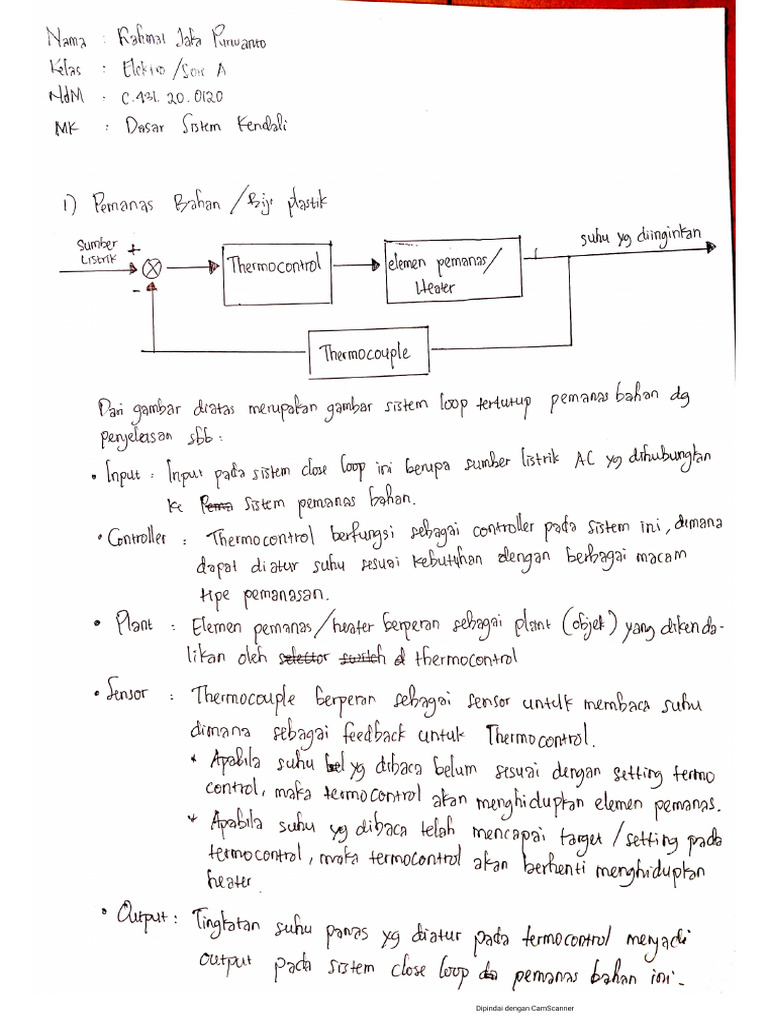 Nama : Rahmat Jaka Purwanto
Kelas : Elektro/Sore A
NIM : C.431.20.0120
MK : Dasar Sistem Kendali
1) Pemanas Bahan/Biji plastik
Sumber Listrik + suhu yg diinginkan
- Thermocontrol elemen pemanas/ Heater
Thermocouple
Dari gambar diatas merupakan gambar sistem loop tertutup pemanas bahan dg
penjelasan sbb :
• Input : Input pada sistem close loop ini berupa sumber listrik AC yg dihubungkan
ke Pema sistem pemanas bahan.
• Controller : Thermocontrol berfungsi sebagai controller pada sistem ini, dimana
dapat diatur suhu sesuai kebutuhan dengan berbagai macam
tipe pemanasan.
• Plant : Elemen pemanas/heater berperan sebagai plant (objek) yang dikenda-
likan oleh selector switch d thermocontrol
• Sensor : Thermocouple berperan sebagai sensor untuk membaca suhu
dimana sebagai feedback untuk Thermocontrol.
* Apabila suhu bel yg dibaca belum sesuai dengan setting termo
control, maka termocontrol akan menghidupkan elemen pemanas.
* Apabila suhu yg dibaca telah mencapai target/setting pada
termocontrol, maka termocontrol akan berhenti menghidupkan
heater.
• Output : Tingkatan suhu panas yg diatur pada termocontrol menjadi
output pada sistem close loop da pemanas bahan ini.
Dipindai dengan CamScanner